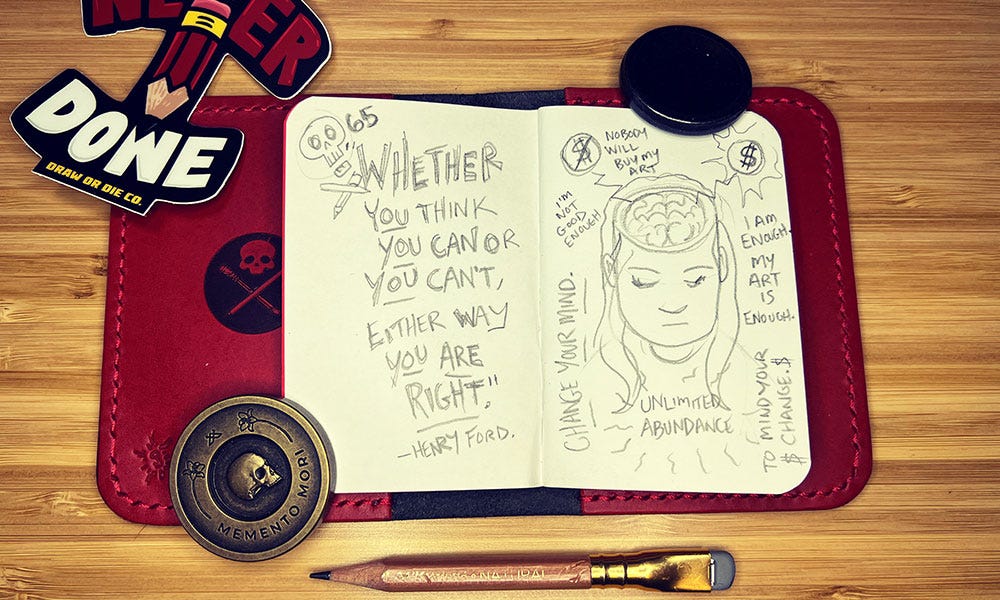 NEVER
DONE
DRAW OR DIE CO.
65
"WHETHER
YOU THINK
YOU CAN OR
YOU CAN'T,
EITHER WAY
YOU ARE
RIGHT."
—HENRY FORD.
$
NOBODY
WILL
BUY MY
ART
I'M
NOT
GOOD
ENOUGH
$
I AM
ENOUGH.
MY
ART
IS
ENOUGH.
CHANGE YOUR MIND.
UNLIMITED
ABUNDANCE
TO MIND YOUR
$ CHANGE. $
MEMENTO MORI
NATURAL